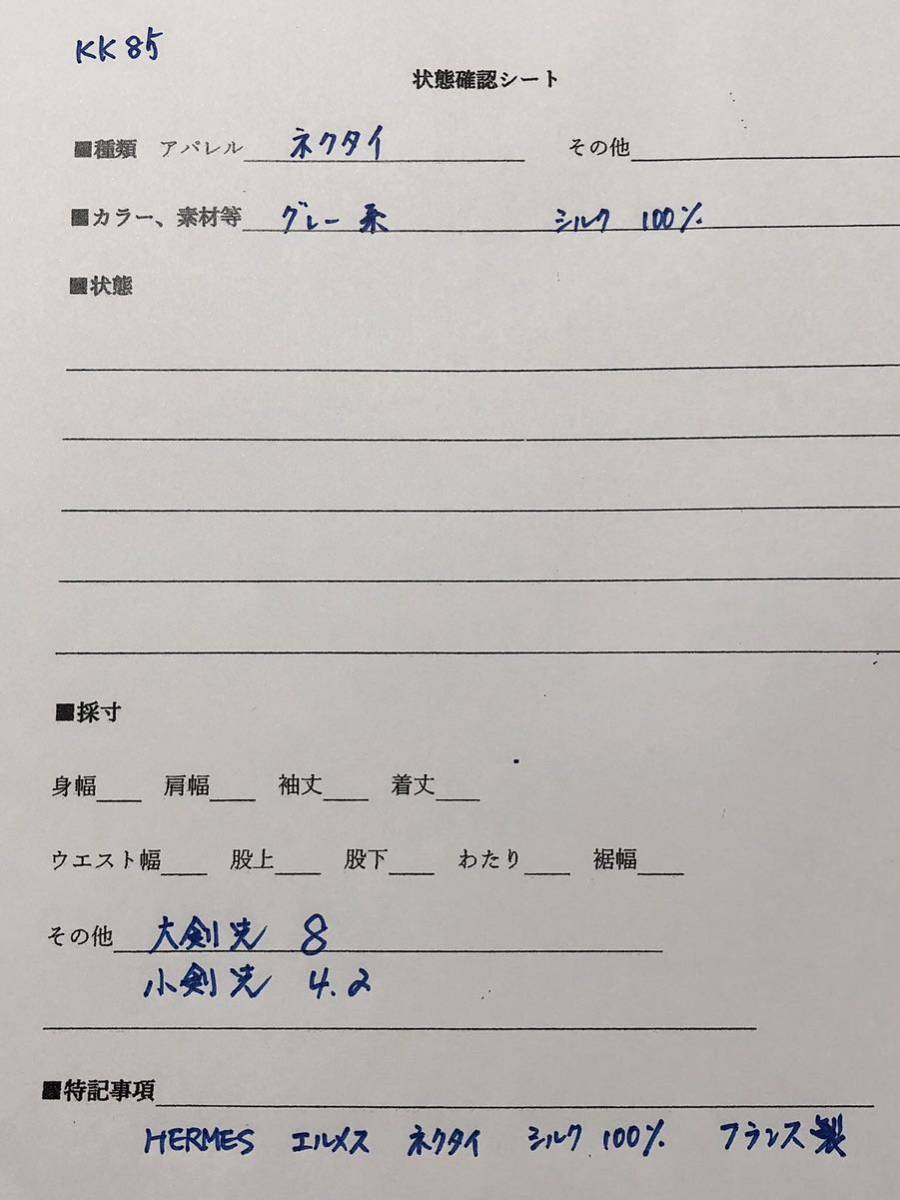 KK85
状態確認シート
■種類 アパレル ネクタイ その他
■カラー、素材等 グレー系 シルク 100%
■状態
■採寸
身幅 肩幅 袖丈 着丈
ウエスト幅 股上 股下 わたり 裾幅
その他 大剣先 8
小剣先 4.2
■特記事項
HERMES エルメス ネクタイ シルク 100% フランス製